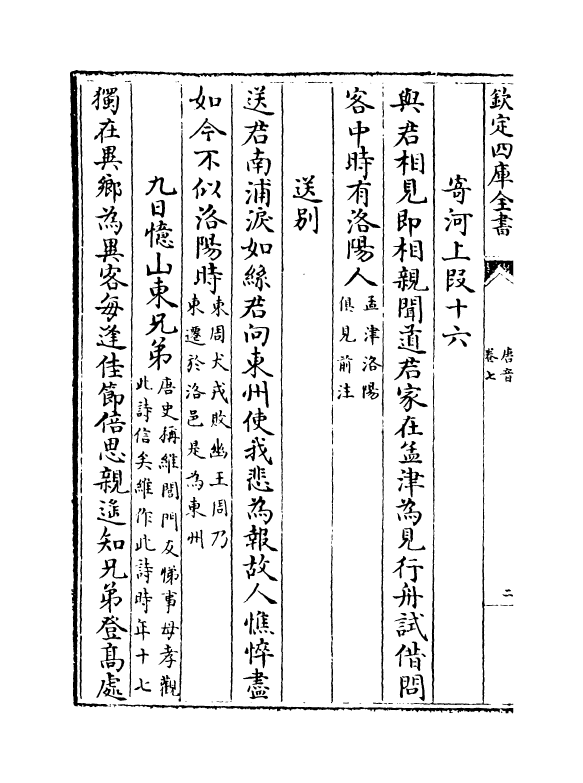 欽定四庫全書
唐音
卷七
二
寄河上段十六
與君相見即相親聞道君家在孟津為見行舟試借問
客中時有洛陽人孟津洛陽
俱見前注
送别
送君南浦淚如絲君向東州使我悲為報故人憔悴盡
如今不似洛陽時東周犬戎敗幽王周乃
東遷於洛邑是為東州
九日憶山東兄弟唐史稱維閨門友悌事母孝觀
此詩信矣維作此詩時年十七
獨在異鄉為異客每逢佳節倍思親遙知兄弟登髙處